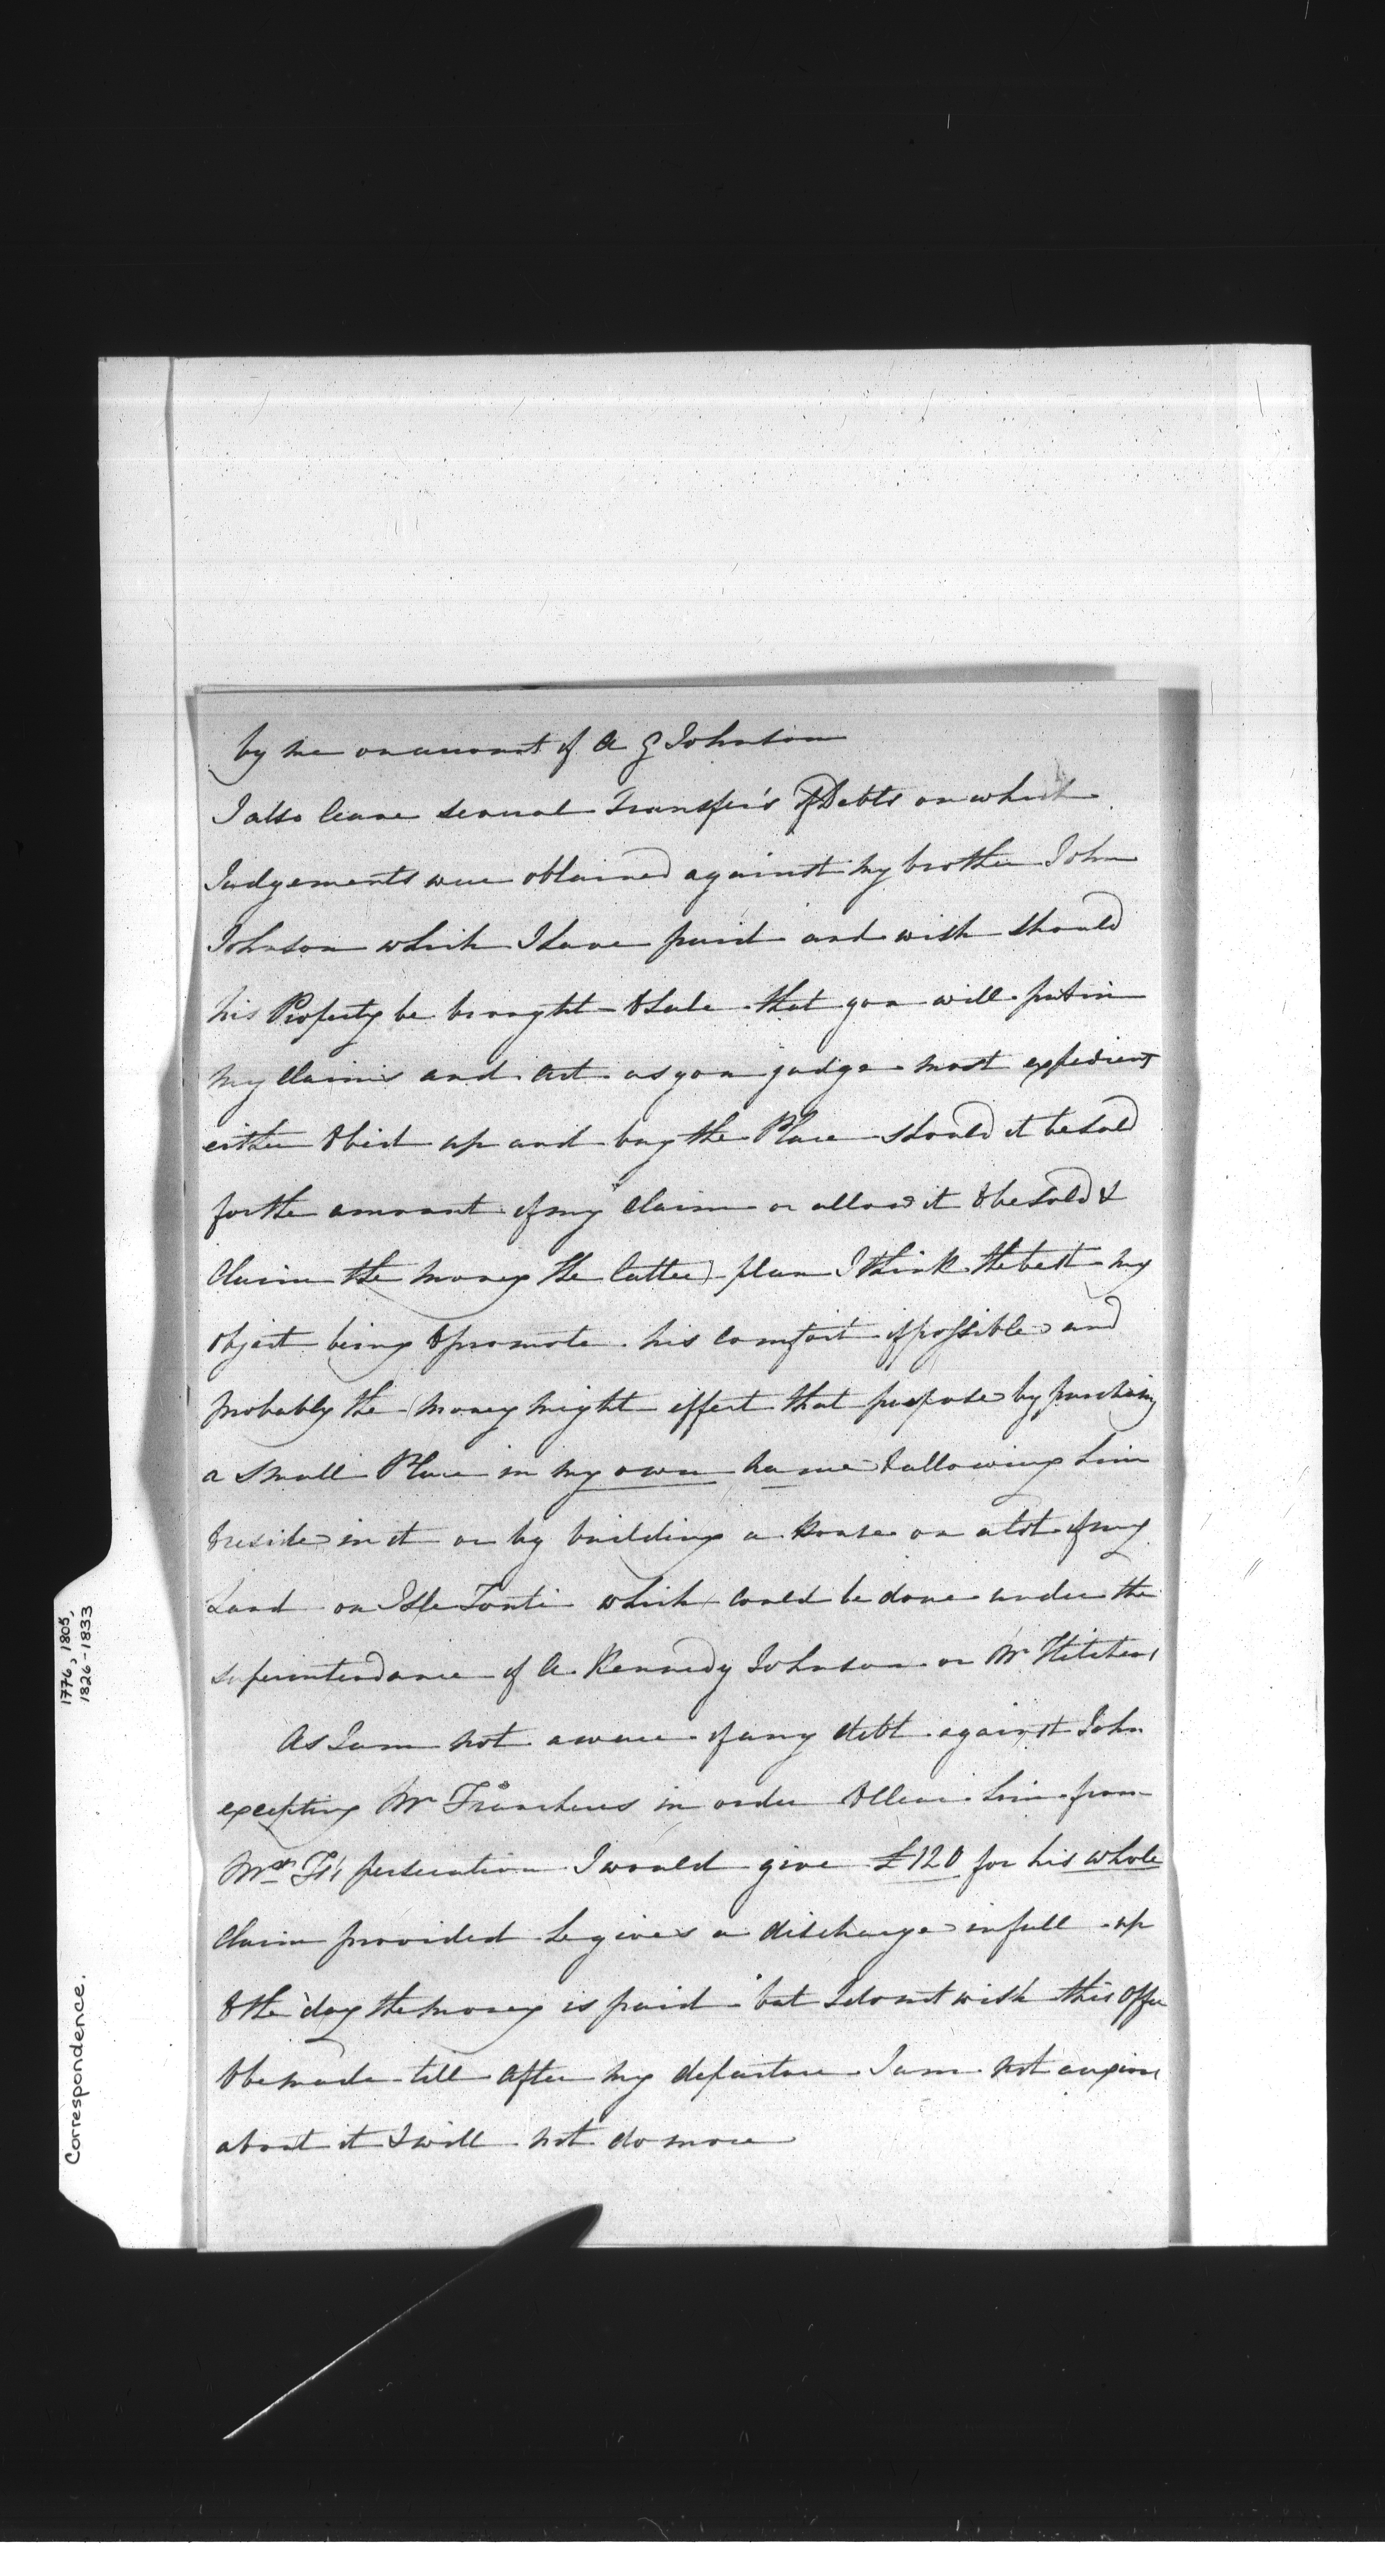 by me on account of A G Johnson
I also leave several Transfer's of Debts on which
Judgements were obtained against my brother John
Johnson which I have paid and wish should
his Property be brought to Sale that you will put in
my Claims and Act as you judge most expedient
either to bid up and buy the Place should it be sold
for the amount of my Claim or allow it to be sold &
Claim the money the latter plan I think the best my
object being to promote his Comfort if possible and
probably the money might effect that purpose by purchasing
a small Place in my own name & allowing him
to reside in it or by building a house on a lot of my
Land on Isle Tonti which could be done under the
superintendance of A. Kennedy Johnson or Mr Hitchens
As I am not aware of any debt against John
excepting Mr Franchers in order to clear him from
Mr F's persecution I would give £120 for his whole
Claim provided he gives a discharge in full up
to the day the money is paid but I do not wish this offer
to be made till after my departure I am not anxious
about it I will not do more
Correspondence.
1776, 1805,
1826-1833